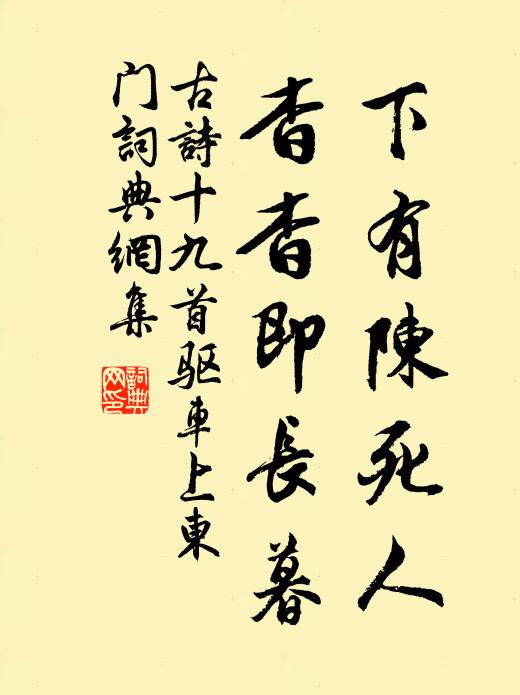 下有陳死人
杳杳即長暮
古詩十九首驱車上東
门詞典網集
詞典
网印